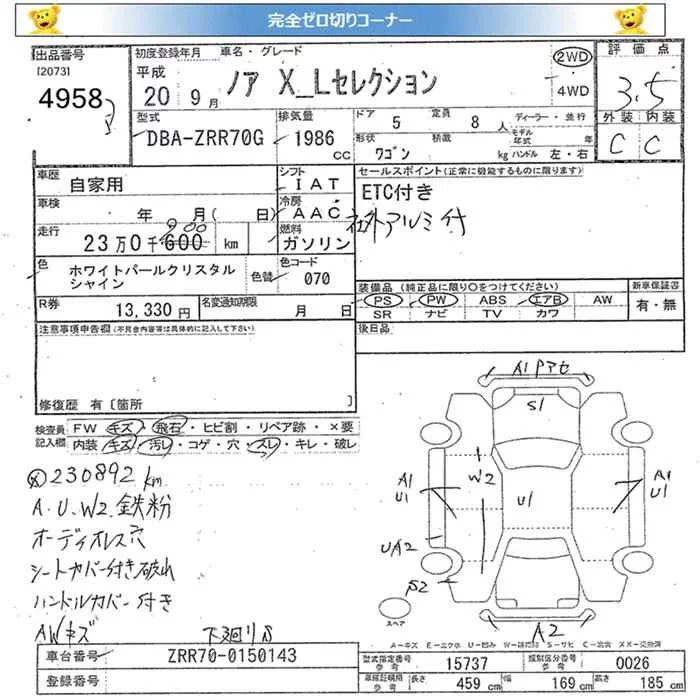 完全ゼロ切りコーナー
出品番号
[2073]
4958
初度登録年月
平成
20 9 月
車名・グレード
ノア X_Lセレクション
2WD
4WD
評価点
3.5
外装 内装
C C
型式
DBA-ZRR70G
排気量
1986 cc
ドア 5
定員 8 人
形状
ワゴン
積載
kg
ディーラー・並行
モデル年式 年
ハンドル 左・右
車歴
自家用
シフト
IAT
車検
年 月( 日)
冷房
AAC
走行
23万0千600 km
900
燃料
ガソリン
色
ホワイトパールクリスタル
シャイン
色替
色コード
070
R券
13,330円
名変通知期限
月 日
セールスポイント(正常に機能するものに限ります)
ETC付き
社外アルミ付
装備品(純正品に限り○をつけてください)
PS PW ABS エアB AW
SR ナビ TV カワ
新車保証書
有・無
後日品
注意事項申告欄(不具合内容等は具体的に記入して下さい)
修復歴 有〔箇所 〕
検査員記入欄
FW キズ・飛石・ヒビ割・リペア跡・×要
内装 キズ・汚レ・コゲ・穴・スレ・キレ・破レ
230892 km
A.U.W2 鉄粉
オーディオレス穴
シートカバー付き破れ
ハンドルカバー付き
AWキズ
下廻りS
A1Pアセ
S1
W2
U1
A1
U1
A1
U1
UA2
S2
A2
スペア
A=キズ E=エクボ U=凹み W=補修跡 S=サビ C=腐食 XX=交換済
車台番号
ZRR70-0150143
登録番号
型式指定番号
参考
15737
類別区分番号
参考
0026
車庫証明用
参考
長さ 459 cm
幅 169 cm
高さ 185 cm